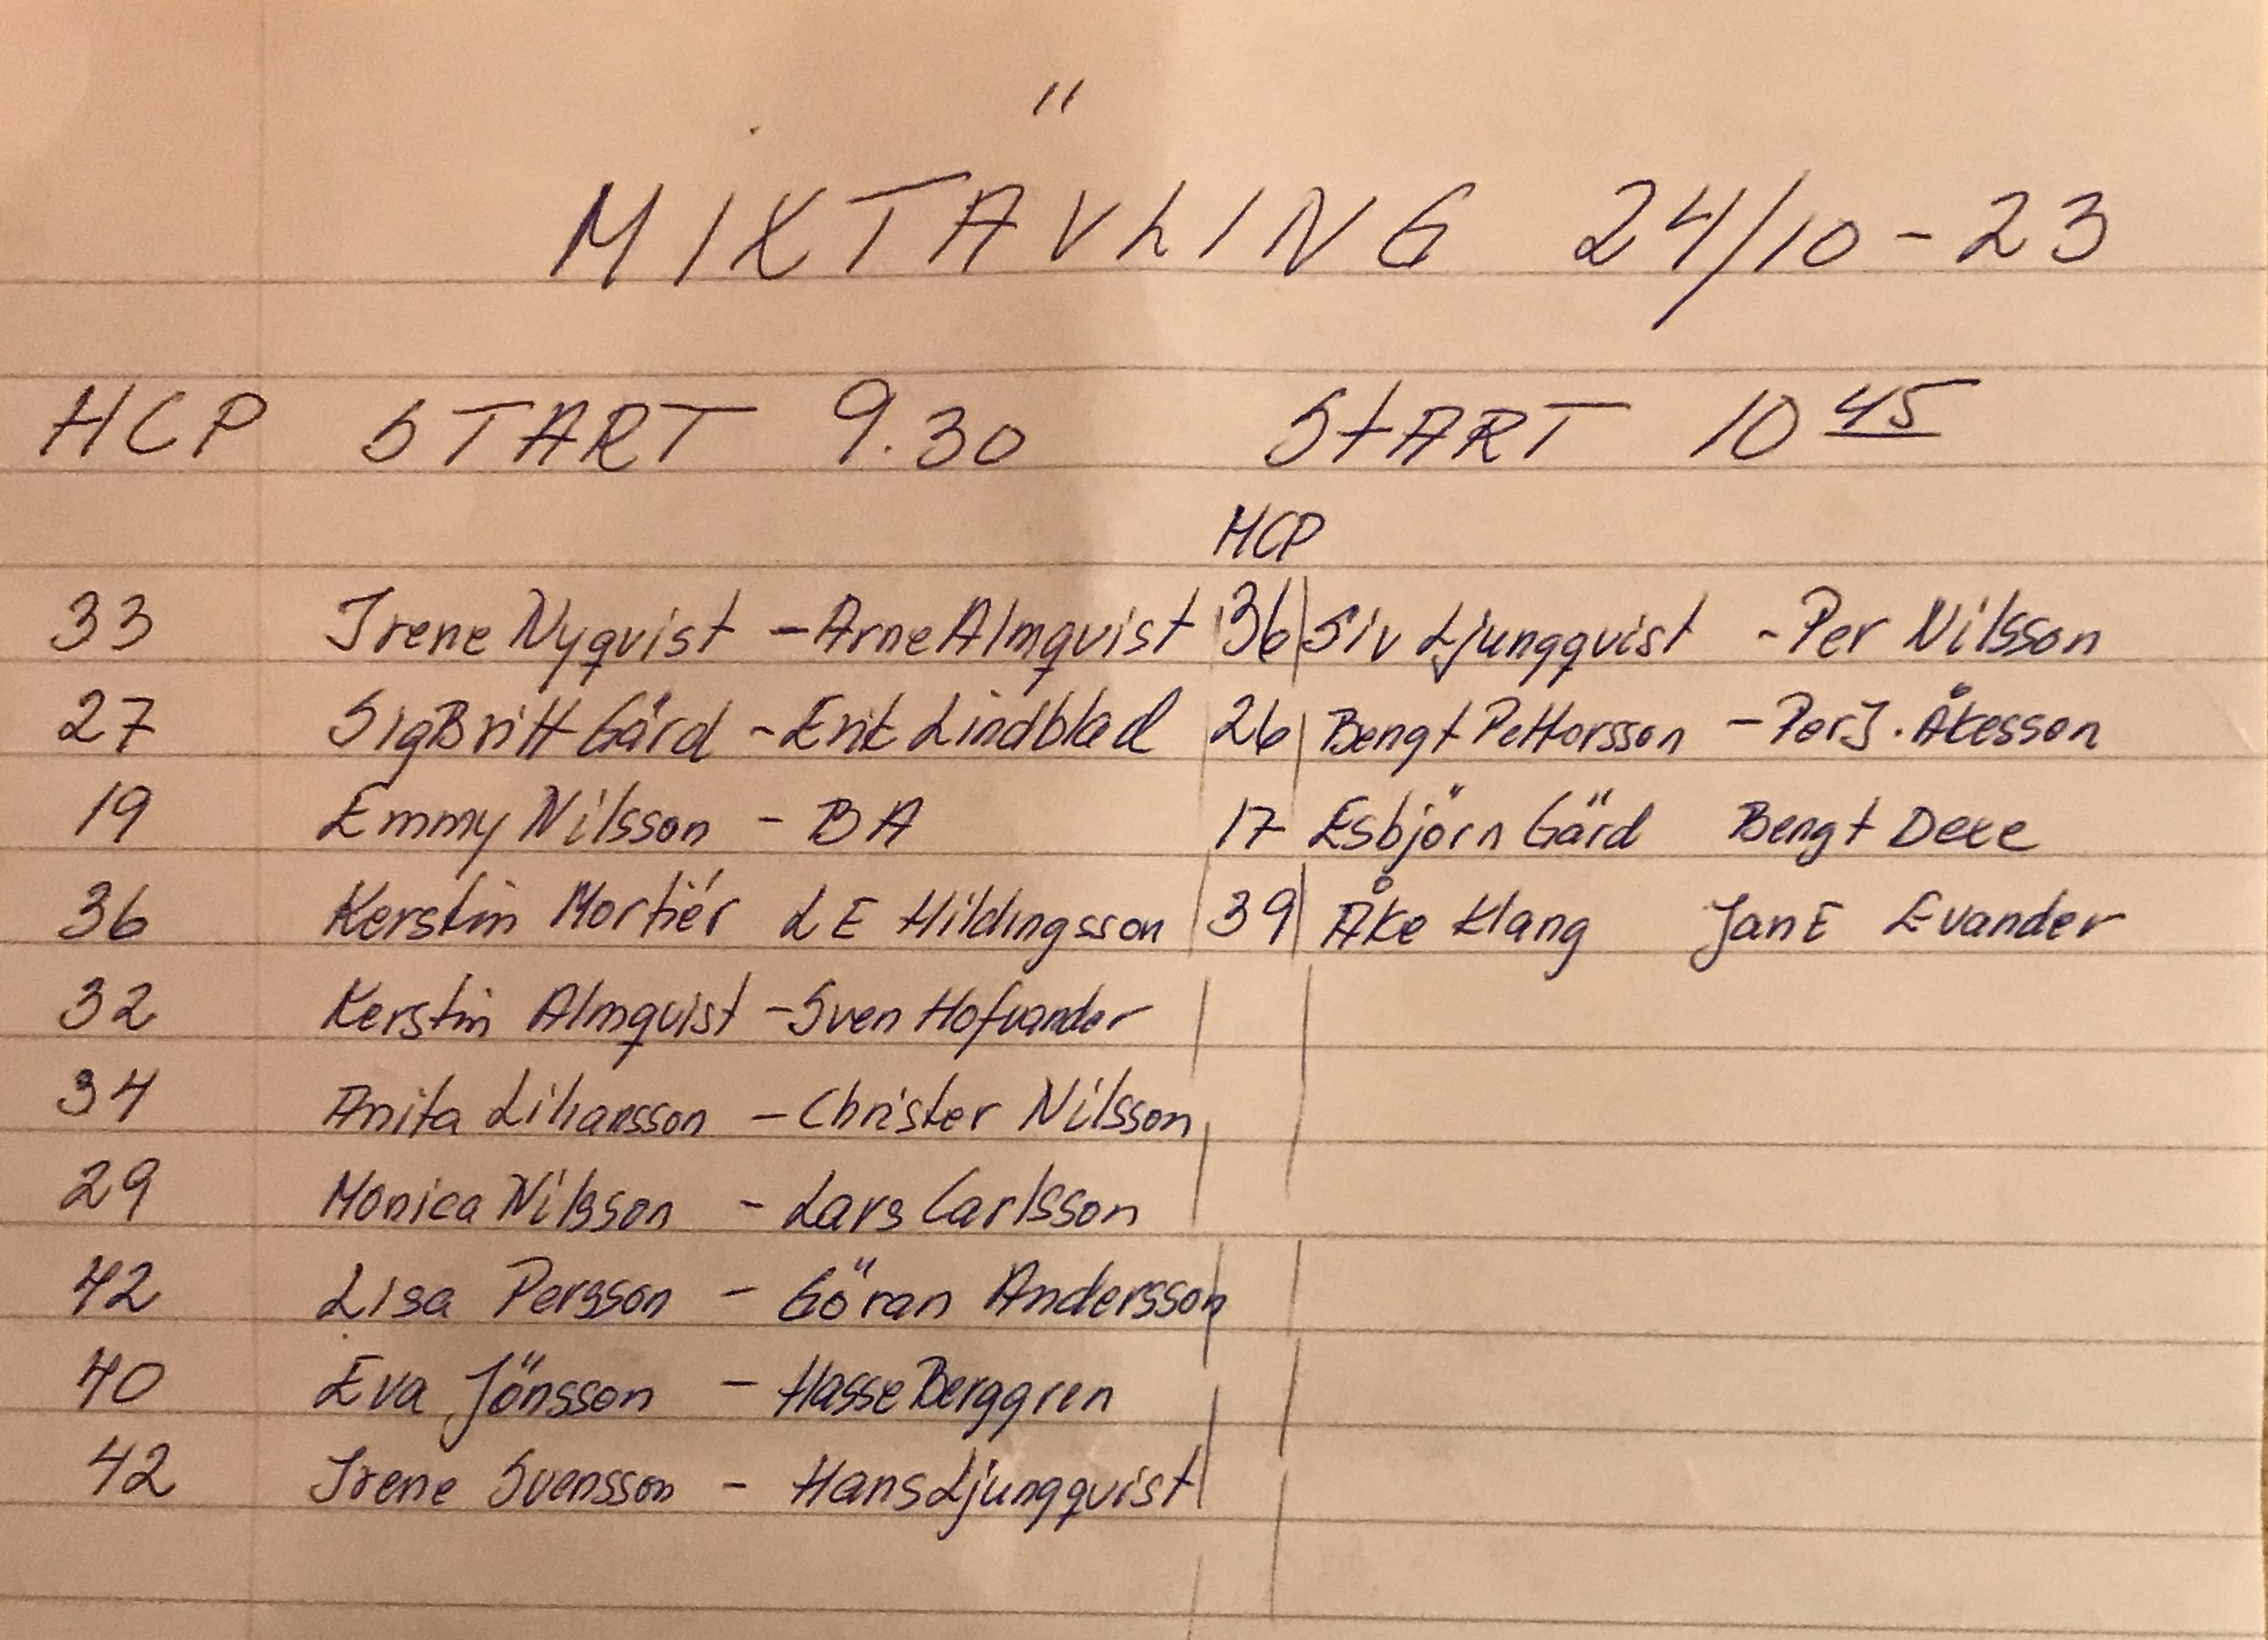 MIXTÄVLING 24/10-23
HCP START 9.30 START 10 45
HCP
33 Irene Nyqvist - Arne Almqvist 36 Siv Ljungqvist - Per Nilsson
27 SigBritt Gärd - Erik Lindblad 26 Bengt Pettorsson - Per J. Åkesson
19 Emmy Nilsson - BA 17 Esbjörn Gärd Bengt Dexe
36 Kerstin Mortiér LE Hildingsson 39 Åke Klang Jan E Evander
32 Kerstin Almqvist - Sven Hofvander
34 Anita - Christer Nilsson
29 Monica Nilsson - Lars Carlsson
42 Lisa Persson - Göran Andersson
40 Eva Jönsson - Hasse Berggren
42 Irene Svensson - Hans Ljungqvist